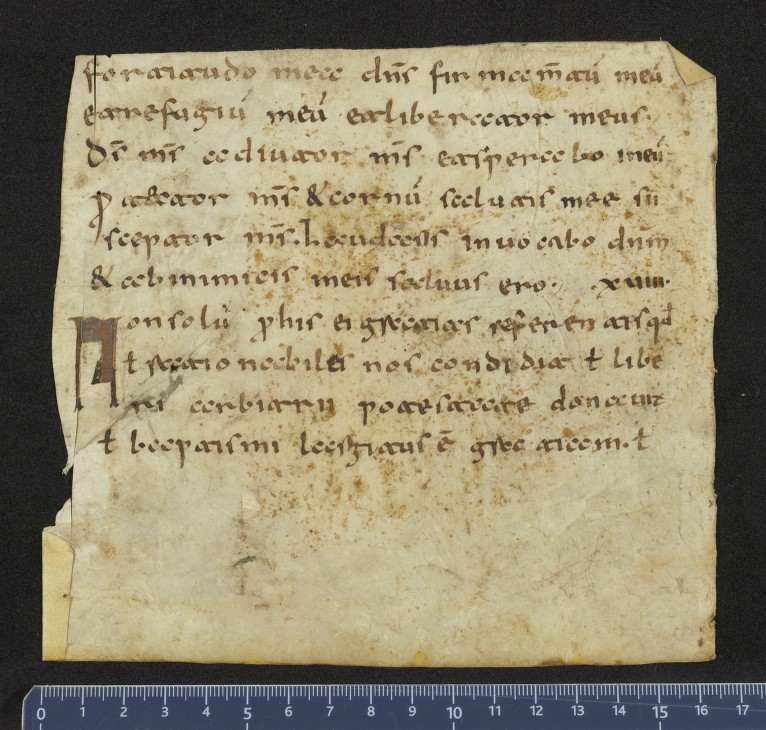 fortitudo mea dn̄s firmam̄tū meū
et refugiū meū et liberator meus.
Ds̄ ms̄ adiutor ms̄ et sperabo ineū
Ptector ms̄ & cornū salutis mee su
sceptor ms̄. Laudans invocabo dnm̄
& ab inimicis meis saluus ero. .xviii.
Non solū phis ei gratias referentis qd
ł rationabiles nos condidit ł libe
ri arbitrii potestate donauit
ł baptismi largitus ē gratiam. ł
0 1 2 3 4 5 6 7 8 9 10 11 12 13 14 15 16 17